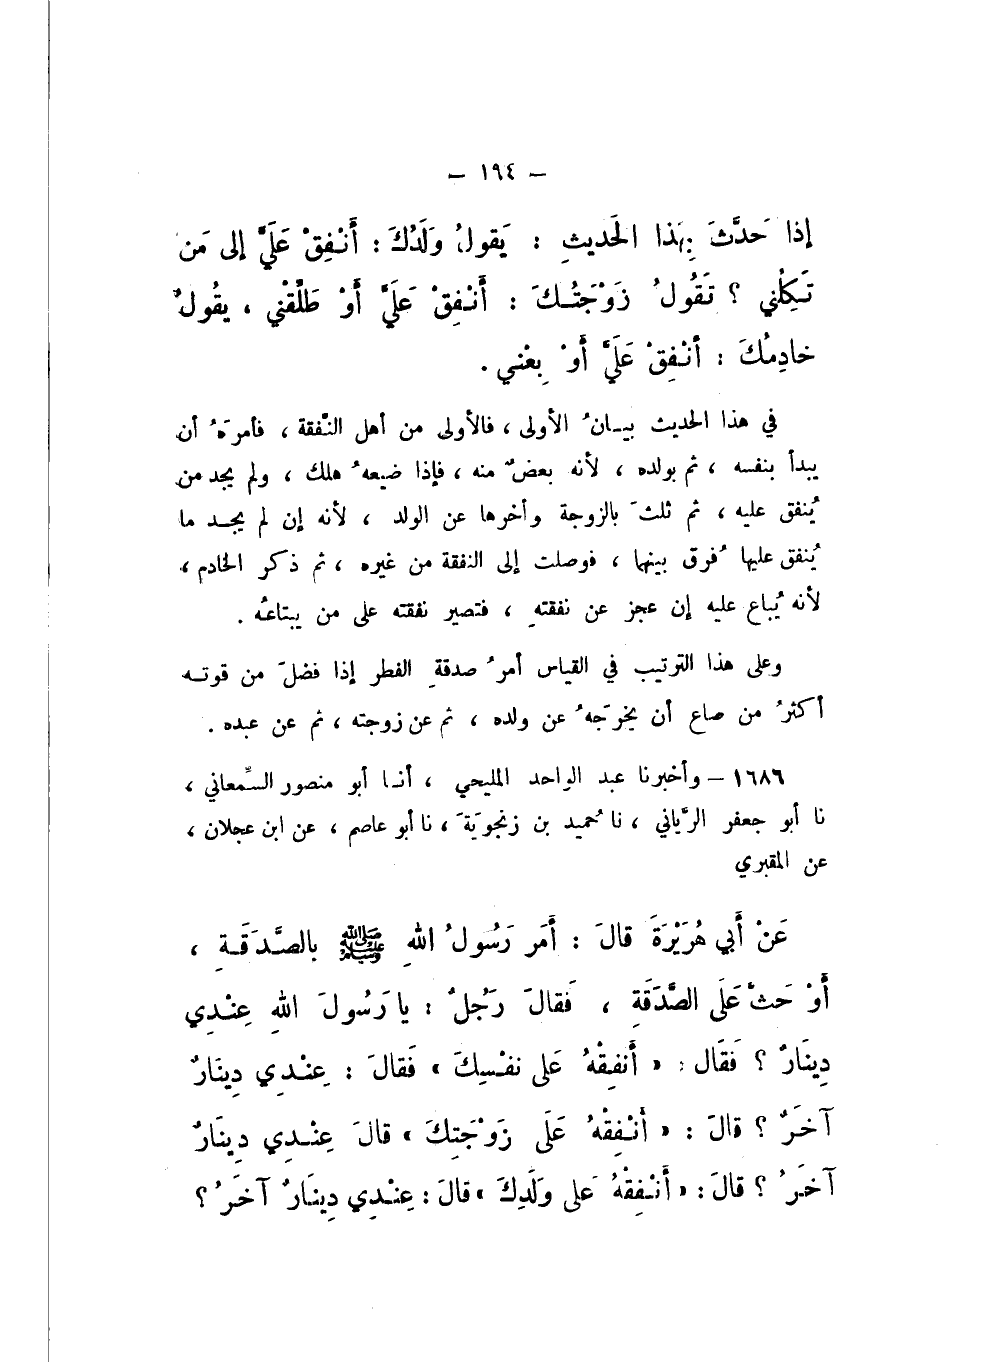 – ١٩٤ –
إذا حَدَّثَ بِهَذا الحَديثِ : يَقولُ وَلَدُكَ : أَنْفِقْ عَلَيَّ إلى مَن
تَكِلُني ؟ تَقُولُ زَوْجَتُـكَ : أَنْفِقْ عَلَيَّ أَوْ طَلِّقْني ، يقُولُ
خادِمُكَ : أنْفِقْ عَلَيَّ أَوْ بِعْني .
في هذا الحديث بيـانُ الأولى ، فالأولى من أهل النَّفقة ، فأمرَهُ أن
يبدأ بنفسه ، ثم بولده ، لأنه بعضٌ منه ، فإذا ضيعهُ هلك ، ولم يجد من
يُنفق عليه ، ثم ثلثَ بالزوجة وأخرها عن الولد ، لأنه إن لم يجـد ما
يُنفق عليها فُرق بينهما ، فوصلت إلى النفقة من غيره ، ثم ذكر الخادم ،
لأنه يُباع عليه إن عجز عن نفقتهِ ، فتصير نفقته على من يبتاعُه .
وعلى هذا الترتيب في القياس أمرُ صدقةِ الفطر إذا فضلَ من قوتـه
أكثرُ من صاع أن يخرجَهُ عن ولده ، ثم عن زوجته ، ثم عن عبده .
١٦٨٦ – وأخبرنا عبد الواحد المليحي ، أنـا أبو منصور السِّمعاني ،
نا أبو جعفر الرَّياني ، نا حُميد بن زنجوَيةَ ، نا أبو عاصم ، عن ابن عجلان ،
عن المقبري
عَنْ أَبي هُرَيْرَةَ قالَ : أَمَر رَسُولُ اللهِ ﷺ بالصَّدَقَـةِ ،
أَوْ حَثَّ عَلَى الصَّدَقَةِ ، فَقالَ رَجُلٌ : يا رَسُولَ اللهِ عِنْـدِي
دِينَارٌ ؟ فَقَال : « أَنفِقْهُ عَلى نفْسِكَ » فَقالَ : عِنْـدِي دِينَارٌ
آخَرٌ ؟ قالَ : « أَنْـفِقْهُ عَلَى زَوْجَتِكَ » قالَ عِنْـدِي دِينَارٌ
آخَرُ ؟ قالَ : « أَنْـفِقْهُ عَلى وَلَدِكَ » قالَ : عِنْـدِي دِينَارٌ آخَرُ ؟